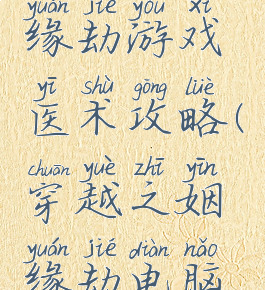 yuán jié yóu xì
缘劫游戏
yī shù gōng lüè
医术攻略(
chuān yuè zhī yīn
穿越之姻
yuán jié diàn nǎo
缘劫电脑